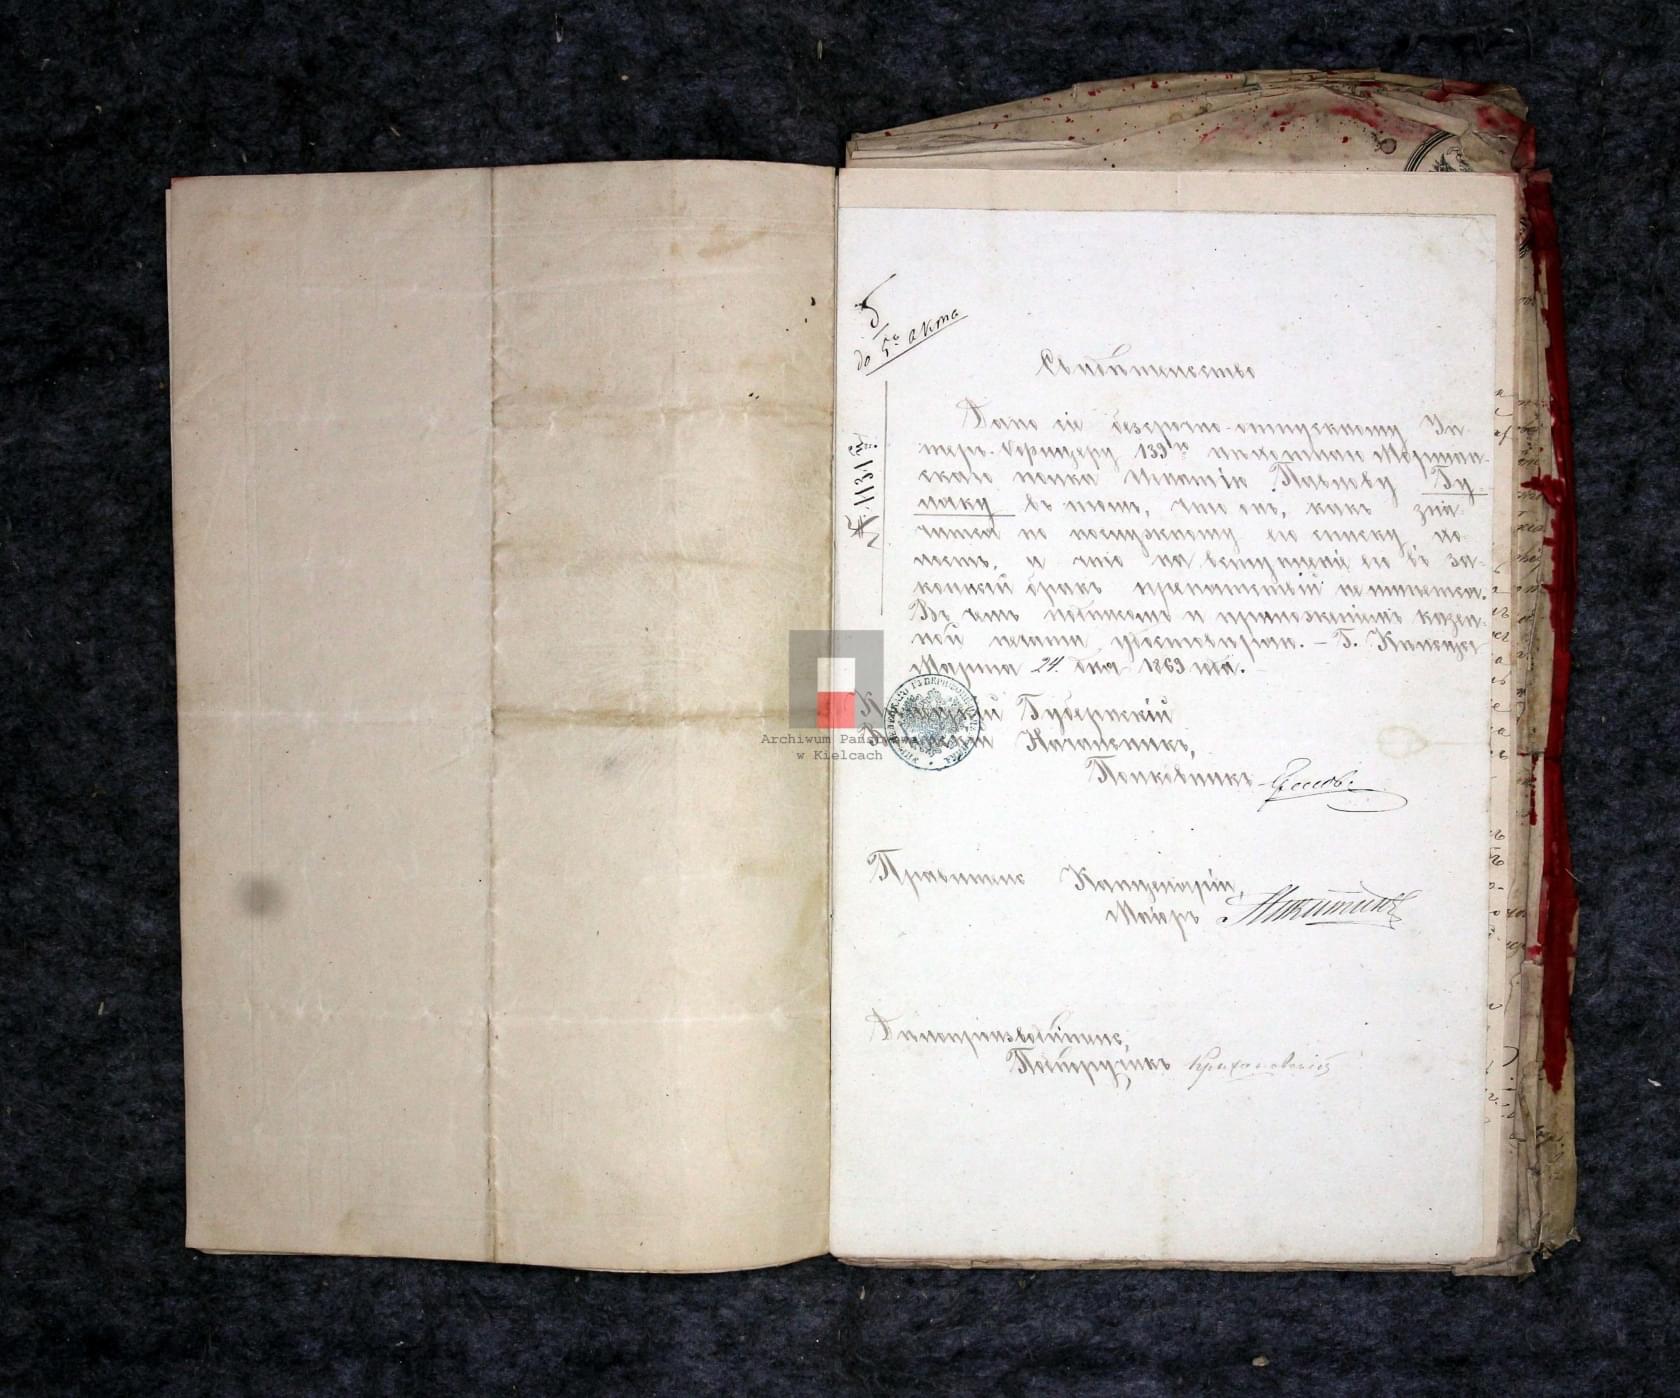 б
до 5го акта
№ 1131
Свидѣтельство
Дано сіе безсрочно-отпускному Ун-
теръ-Офицеру 139го пѣхотнаго Моршан-
скаго полка Игнатію Павлову Бу-
лаку въ томъ, что онъ, какъ зна-
чится по послужному его списку, хо-
лостъ, и что на вступленіе его въ за-
конный бракъ препятствій не имѣется.
Въ чемъ подписомъ и приложеніемъ казен-
ной печати удостовѣряю. – Г. Кѣльцы
Марта 24 дня 1869 года.
Губернскій
Начальникъ,
Полковникъ
Правитель Канцеляріи,
Маіоръ Никитинъ
Дѣлопроизводитель,
Поручикъ
Archiwum Państwowe
w Kielcach